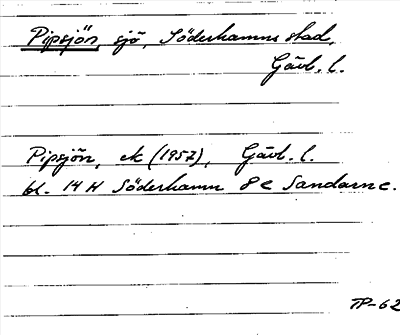 Pipsjön, sjö, Söderhamns stad,
Gävl. l.
Pipsjön, ek (1957), Gävl. l.
bl. 14 H Söderhamn 8 c Sandarne.
TP-62